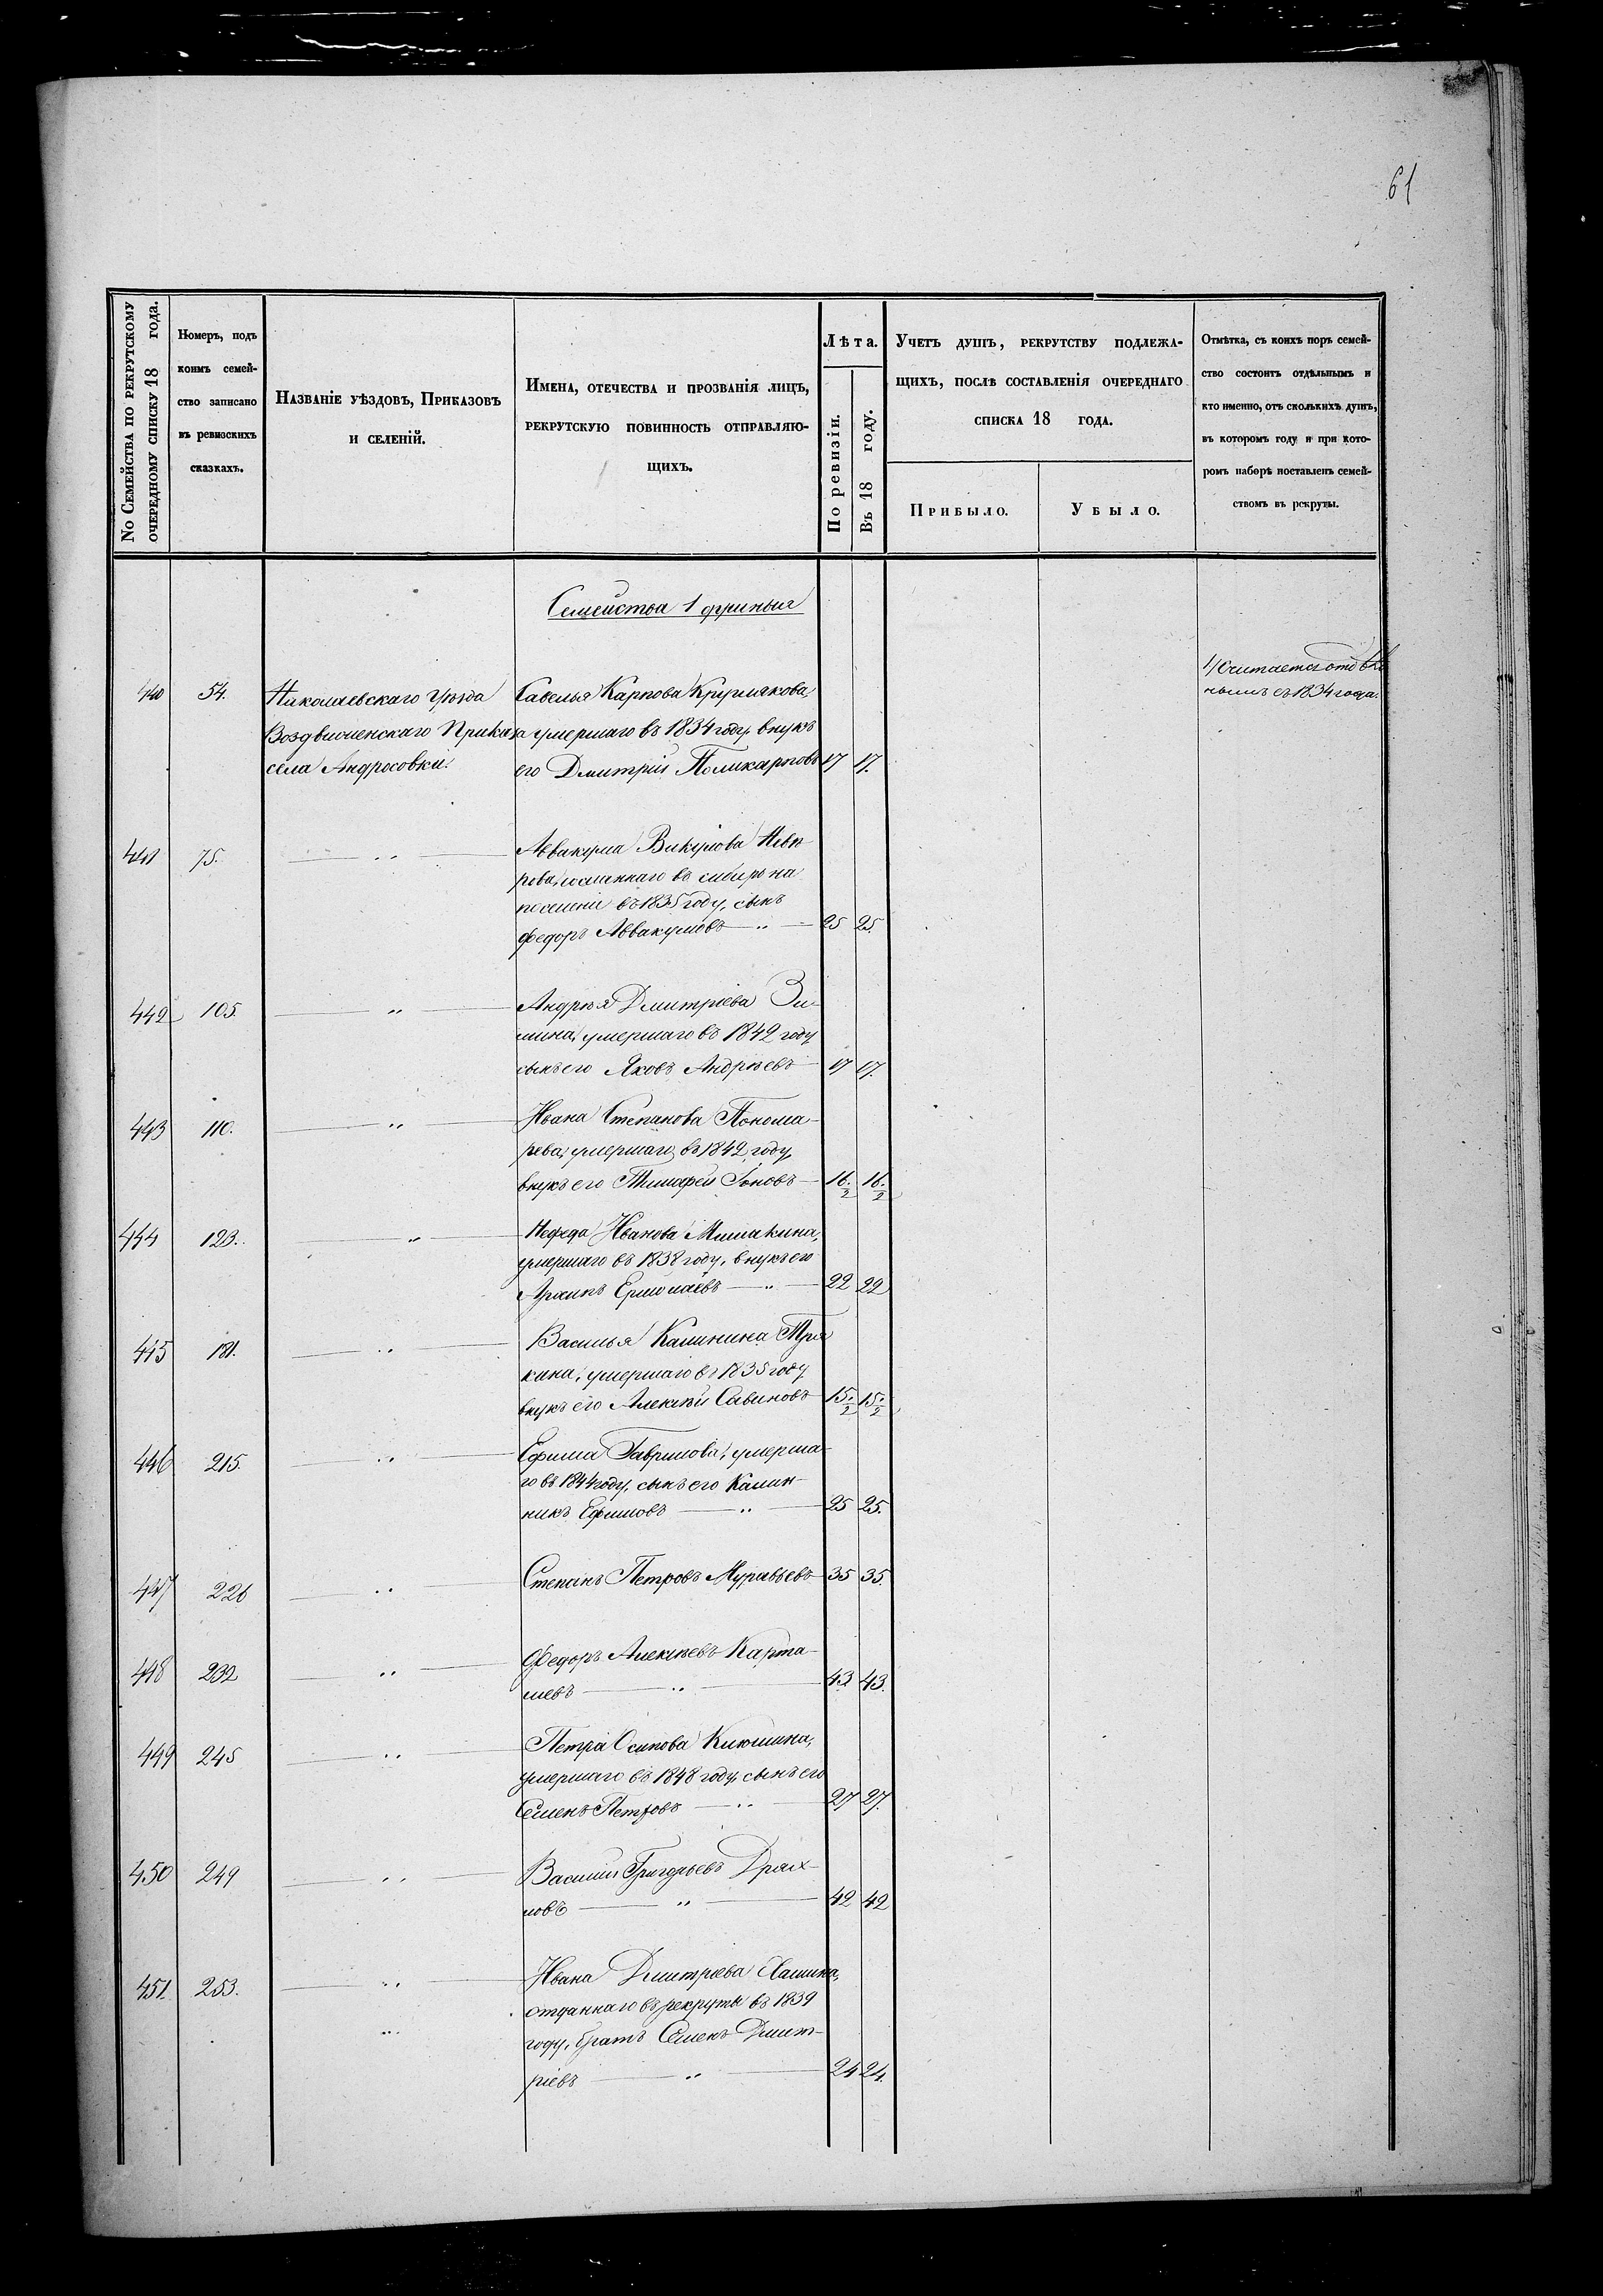 61
№ Семейства по рекрутскому
очередному списку 18 года.
Номеръ, подъ
коимъ семей-
ство записано
въ ревизскихъ
сказкахъ.
Названіе уѣздовъ, Приказовъ
и селеній.
Имена, отечества и прозванія лицъ,
рекрутскую повинность отправляю-
щихъ.
Лѣта.
По ревизіи.
Въ 18 году.
Учетъ душъ, рекрутству подлежа-
щихъ, послѣ составленія очереднаго
списка 18 года.
Прибыло.
Убыло.
Отмѣтка, съ коихъ поръ семей-
ство состоитъ отдѣльнымъ и
кто именно, отъ сколькихъ душъ,
въ которомъ году и при кото-
ромъ наборѣ поставленъ семей-
ствомъ въ рекруты.
Семейства 1 душныя
1/ Считается отдѣль
нымъ съ 1834 года.
440 54. Николаевскаго Уѣзда Савелья Карпова
Воздвиженскаго Приказа умершаго въ 1834 году, внукъ
села Андросовки. его Дмитрій Поликарповъ 17 17.
441 75. Аввакума Викулова
сосланнаго въ сибирь на
поселеніе въ 1835 году, сынъ
Федоръ Аввакумовъ 25 25.
442 105. Андрея Дмитріева Зи-
мина, умершаго въ 1842 году
сынъ его Яковъ Андреевъ 17 17.
443 110. Ивана Степанова Понома-
рева, умершаго въ 1842 году,
внукъ его Тимофей Іоновъ 16 1/2 16 1/2
444 123. Нефеда Иванова Мишакина,
умершаго въ 1838 году, внукъ его
Архипъ Ермолаевъ 22 22
445 181. Василья Калинина Тря
кина, умершаго въ 1835 году
внукъ его Алексѣй Савиновъ 15 1/2 15 1/2
446 215. Ефима Гаврилова, умерша-
го въ 1844 году, сынъ его Калин-
никъ Ефимовъ 25 25.
447 226 Степанъ Петровъ Муравьевъ 35 35.
448 232 Федоръ Алексѣевъ Карта-
шевъ 43 43.
449 245 Петра Осипова
умершаго въ 1848 году, сынъ его
Семенъ Петровъ 27 27.
450 249 Василій Григорьевъ
42 42
451. 253. Ивана Дмитріева
отданнаго въ рекруты въ 1839
году, братъ Семенъ Дмит-
ріевъ 24 24.